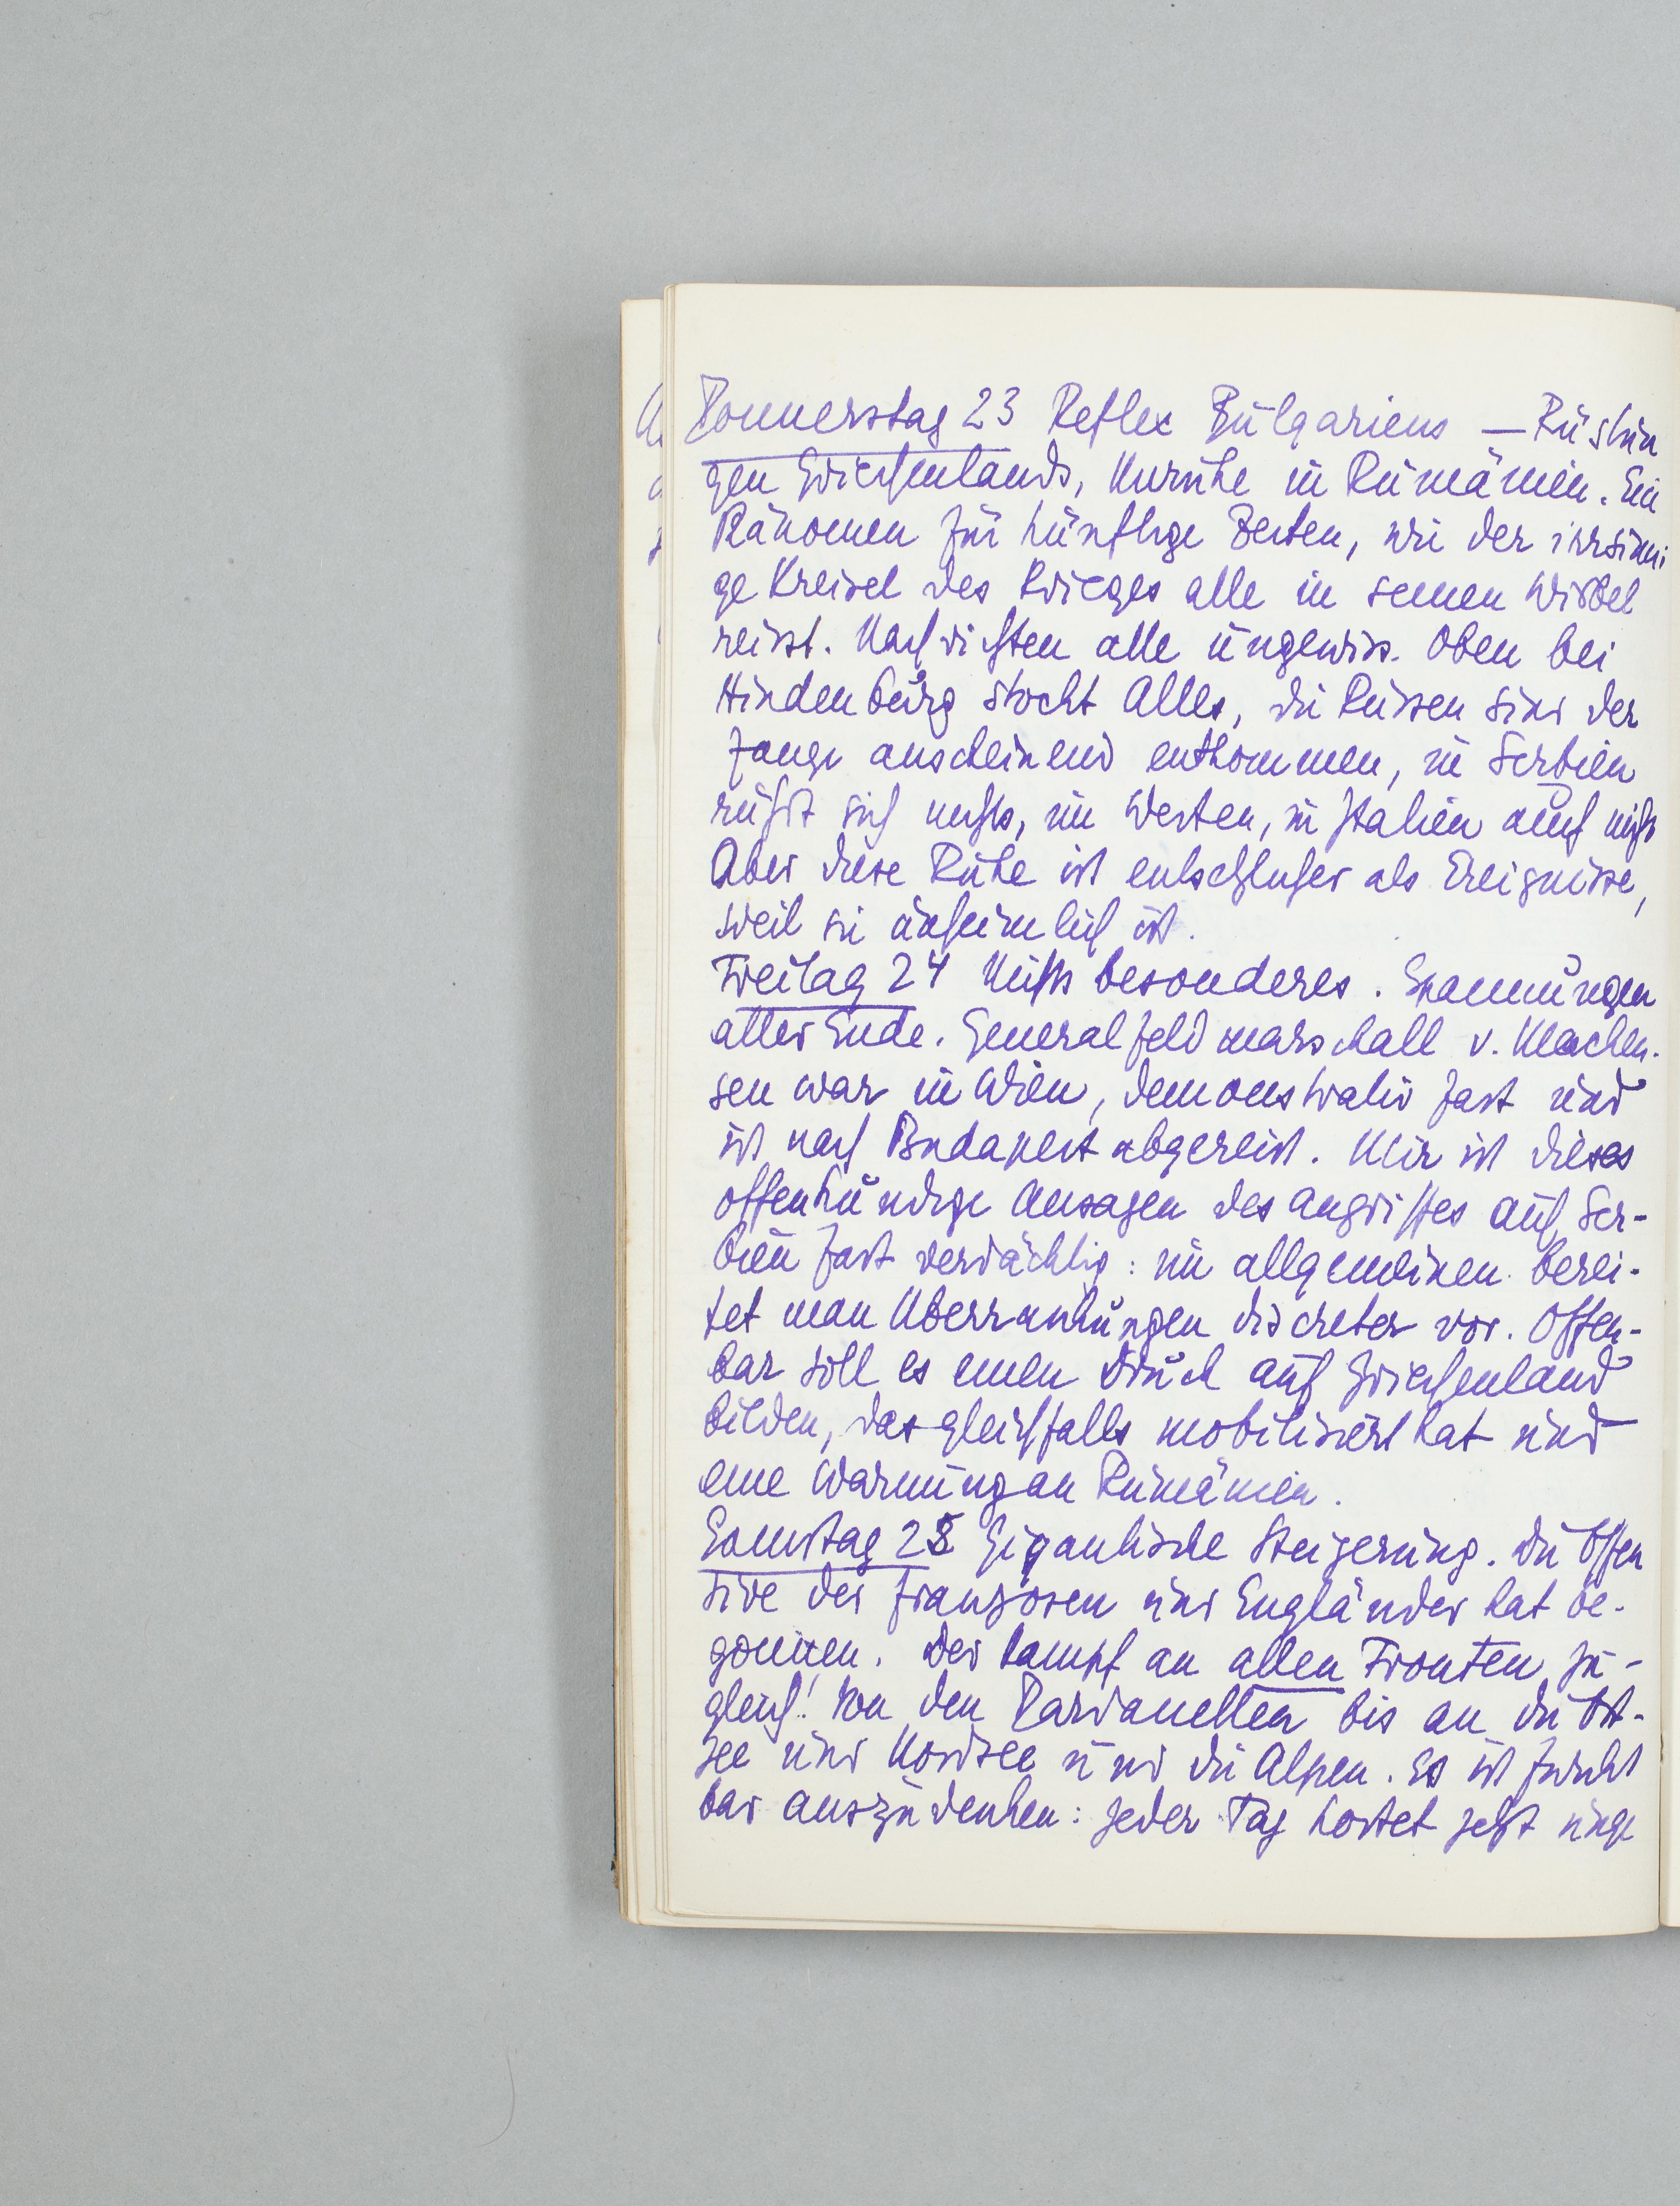 Donnerstag 23 Reflex Bulgariens — Rüstun
gen Griechenlands, Unruhe in Rumänien. Ein
Pänomen für künftige Zeiten, wie der irrsinni
ge Kreisel des Krieges alle in seinen Wirbel
reisst. Nachrichten alle ungewiss. Oben bei
Hindenburg stockt Alles, die Russen sind der
Zange anscheinend entkommen, in Serbien
rührt sich nichts, im Westen, in Italien auch nichts
Aber diese Ruhe ist entsetzlicher als Ereignisse,
weil sie unheimlich ist.
Freitag 24 Nichts besonderes. Spannungen
aller Ende. Generalfeldmarschall v. Macken-
sen war in Wien, demonstrativ fast und
ist nach Budapest abgereist. Mir ist dieses
offenkundige Ansagen des Angriffes auf Ser-
bien fast verdächtig: im allgemeinen berei-
tet man Überraschungen discreter vor. Offen-
bar soll es einen Druck auf Griechenland
bilden, das gleichfalls mobilisiert hat und
eine Warnung an Rumänien.
Samstag 25 Gigantische Steigerung. Die Offen
sive der Franzosen und Engländer hat be-
gonnen. Der Kampf an allen Fronten zu-
gleich! Von den Dardanellen bis an die Ost-
see und Nordsee und die Alpen. Es ist furcht
bar auszudenken: jeder Tag kostet jetzt unge